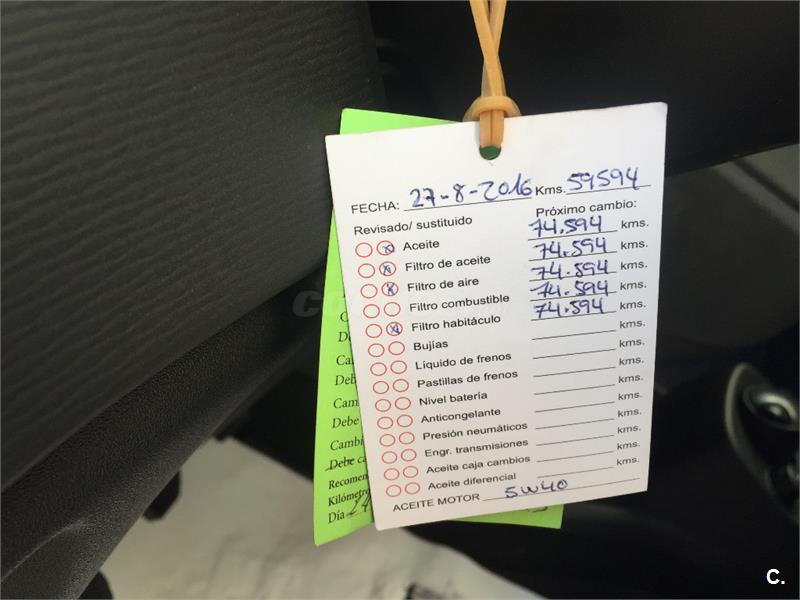 FECHA: 27-8-2016 Kms. 59594
Revisado/ sustituido Próximo cambio:
Aceite 74.594 kms.
Filtro de aceite 74.594 kms.
Filtro de aire 74.594 kms.
Filtro combustible 74.594 kms.
Filtro habitáculo 74.594 kms.
Bujías kms.
Líquido de frenos kms.
Pastillas de frenos kms.
Nivel batería kms.
Anticongelante kms.
Presión neumáticos kms.
Engr. transmisiones kms.
Aceite caja cambios kms.
Aceite diferencial kms.
ACEITE MOTOR 5W40
Debe
Cambi
Debe ca
Recomen
Kilómetr
Día 24
C.